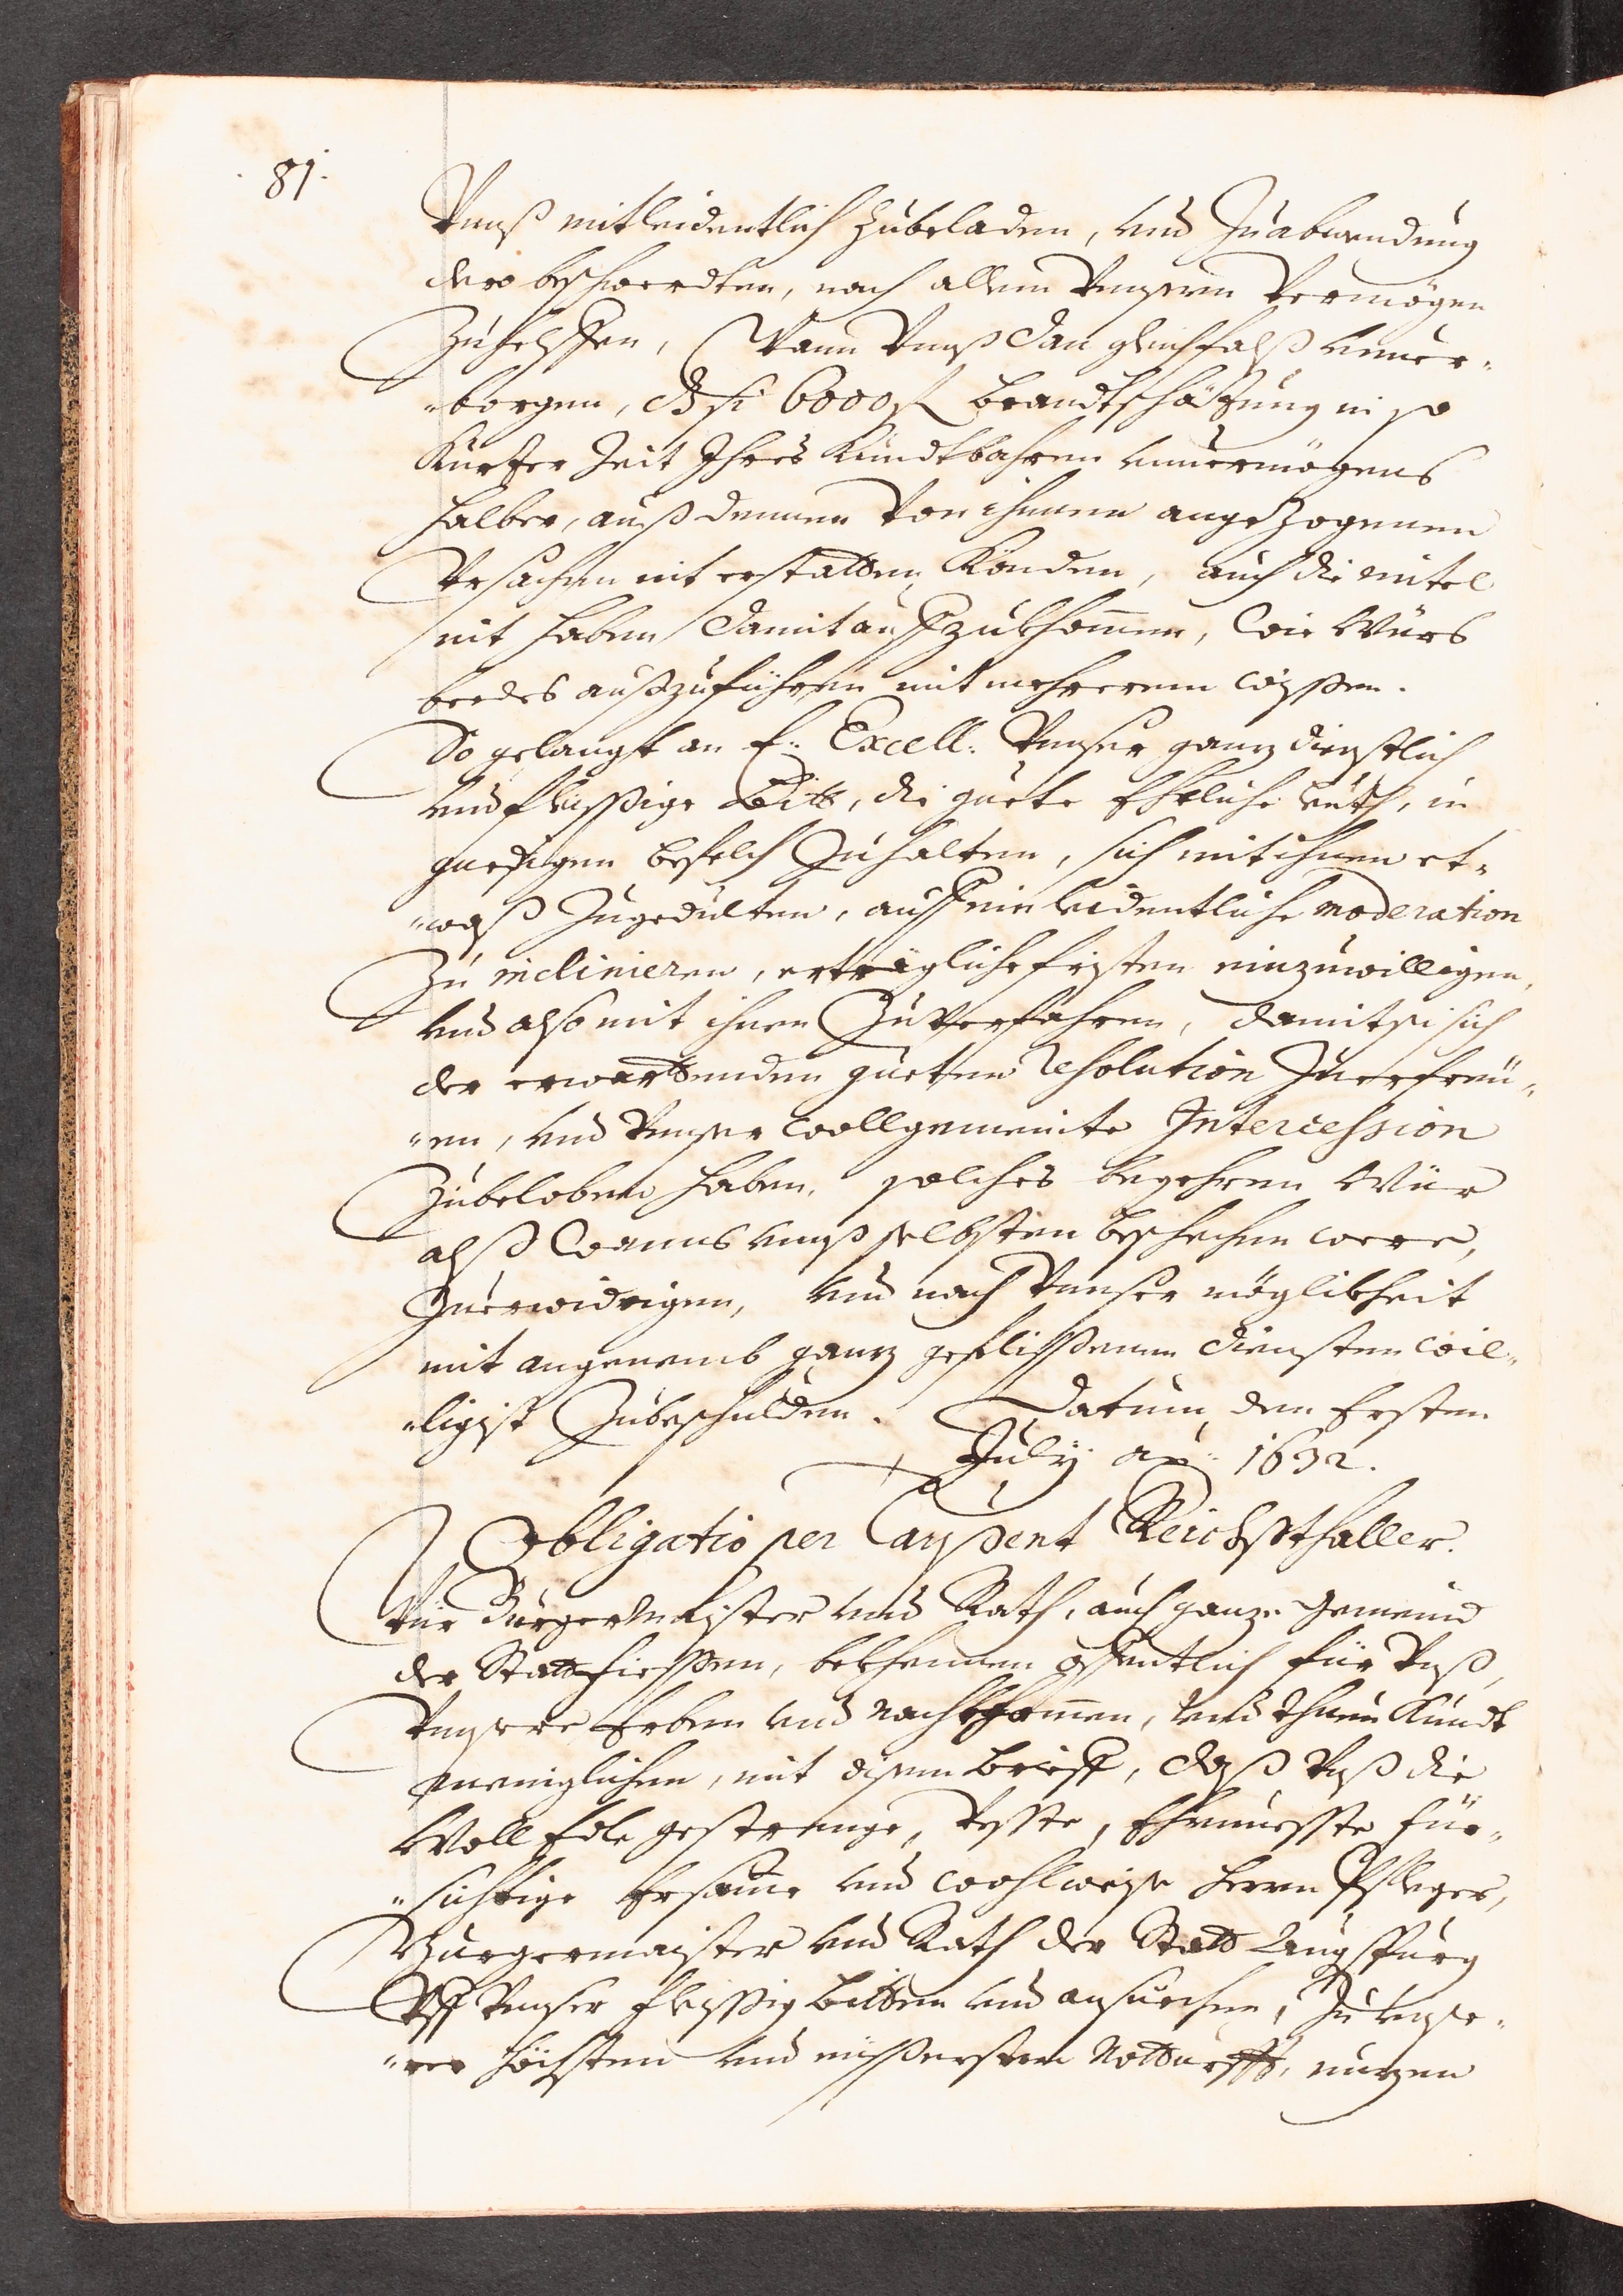 81.
Vnnß mitleidentlich zubeladen, vnd Zuabwendung
dero beschwerdten, nach allem Vnnserm Vermögen
Zuhelffen, Wann Vnnß dan gleichfalß vnuer-
-borgen, dz si 6000 fl brandtschätzung in so
Kurtzer Zeit Ihres Kundtbahren vnuermögens
halber, auß dennen Von ihnnen angezogenen
Vrsachen nit erstatten Könden, auch die mitel
nit haben damit auffzukhommen, Wie Würs
beedes außzuführen mit mehrerem wissen.
So gelangt an E: Excell: Vnnser ganz dienstlich
vnd fleissige Bitt, die guete Ehrliche leuth, in
gnedigen befelch Zuhalten, sich mit ihnen et-
-waß Zugedulten, auff ein leidentliche moderation
Zu inclinieren, erträgliche fristen einzuwilligen,
vnd also mit ihnen Zuverfahren, damit si sich
der erwarttenden gueten resolution Zuerfreü-
-en, vnd Vnnser wollgemeinte Intercession
Zubeloben haben, solches begehren Wür
alß Wanns vnnß selbsten beschehen were,
Zuerwidrigen, vnd nach Vnnser möglikheit
mit angenemb ganz geflissenen diensten wil-
-ligist Zubeschulden. Datum den Ersten
July ao: 1632.
Obligatio per Tausent Reichsthaller.
Wir Burgermaister vnd Rath, auch ganze Gemeind
der Statt Fiessen, bekhennen offentlich für Vnß,
Vnnsere Erben vnd nachkhommen, vnd thuen Kundt
meniglichen, mit disem brieff, daß Vnß die
Woll Edle gestrenge, Vesste, Ehrnuesste für-
-sichtige Ersame vnd wohlweise herrn Pfleger,
Burgermaister vnd Rath der Statt Augspurg
Vff Vnnser fleissig bitten vnd ansuechen, Zu vnse-
-rer höchsten vnd eüsseristen Notturfft, nuzen